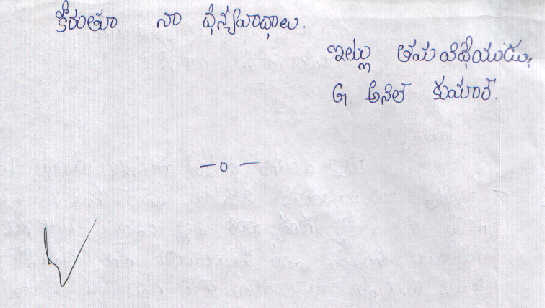 కోరుతూ నా ధన్యవాదాలు.
ఇట్లు తమ విధేయుడు,
G అనిల్ కుమార్.
—o—